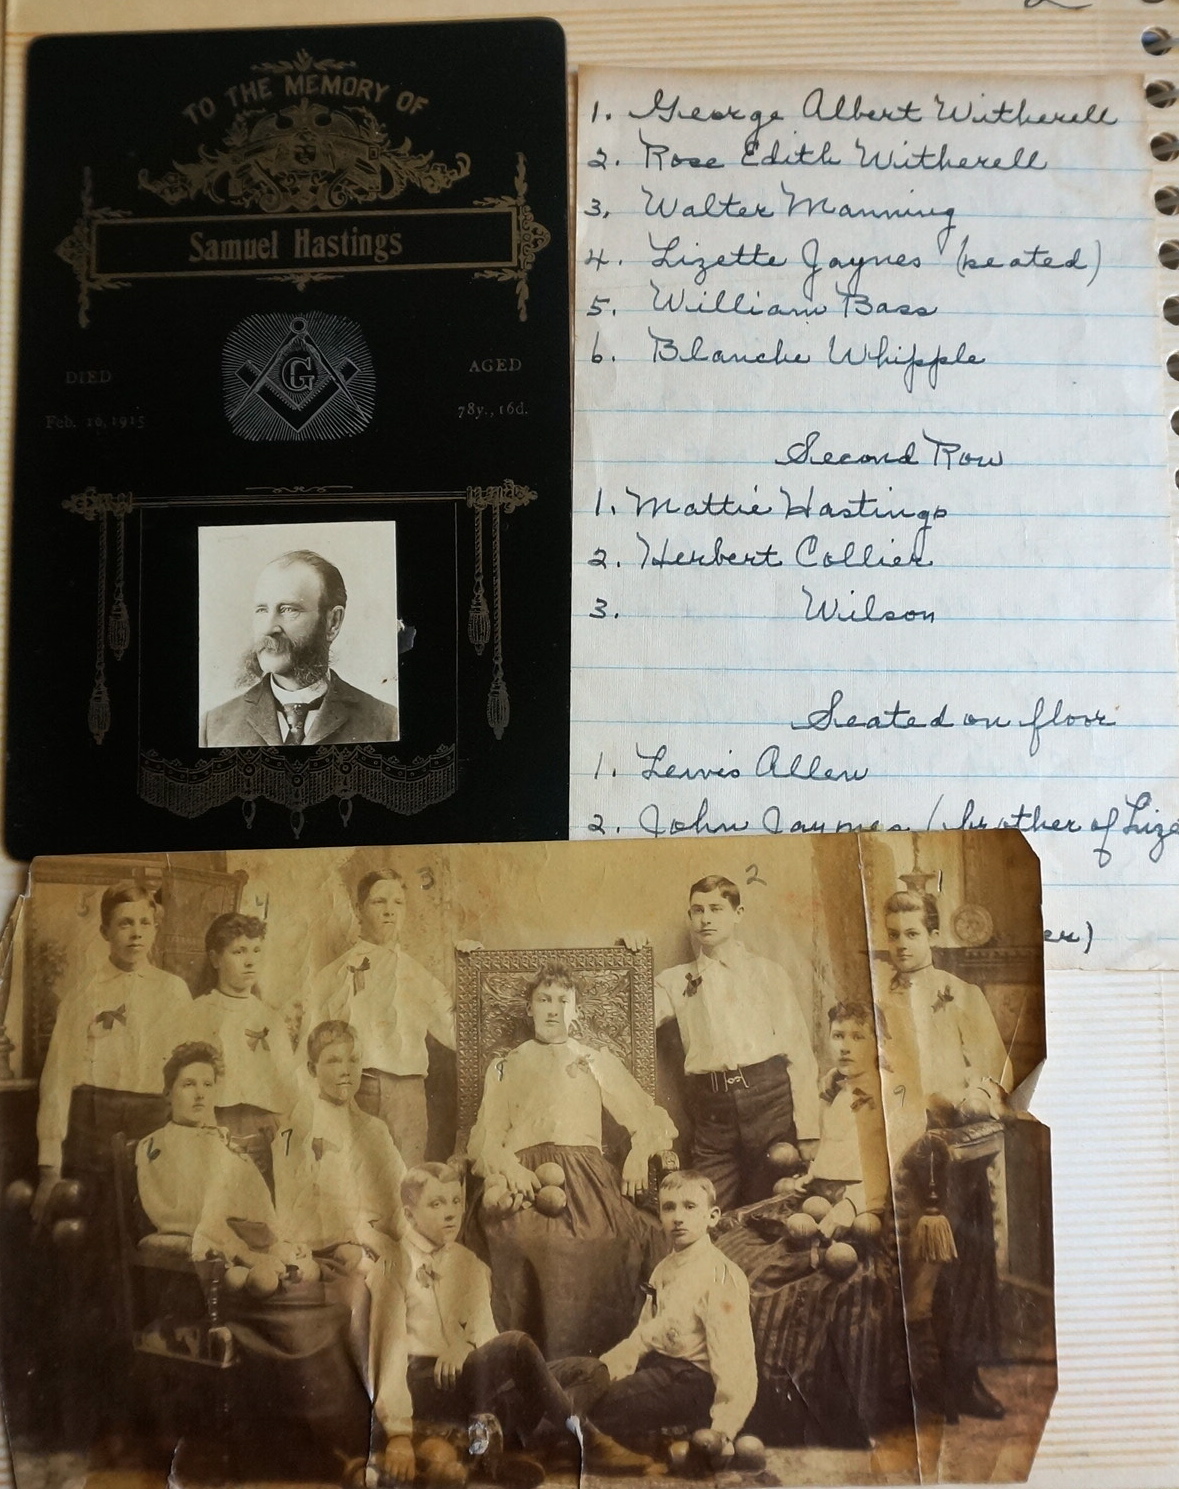 TO THE MEMORY OF
Samuel Hastings
DIED
Feb. 10, 1915
G
AGED
78y., 16d.
1. George Albert Witherell
2. Rose Edith Witherell
3. Walter Manning
4. Lizette Jaynes (seated)
5. William Bass
6. Blanche Whipple
Second Row
1. Mattie Hastings
2. Herbert Collier
3. Wilson
Seated on floor
1. Lewis Allen
2. John Jaynes (brother of Lize
er)
5
4
3
2
1
6
7
8
9
11